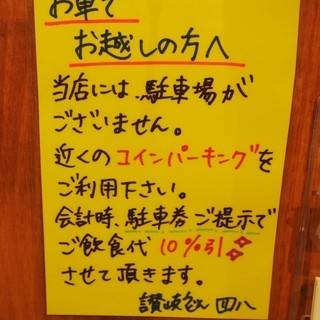 お車で
お越しの方へ
当店には、駐車場が
ございません。
近くのコインパーキングを
ご利用下さい。
会計時、駐車券ご提示で
ご飲食代10%引き
させて頂きます。
讃岐うどん 四八